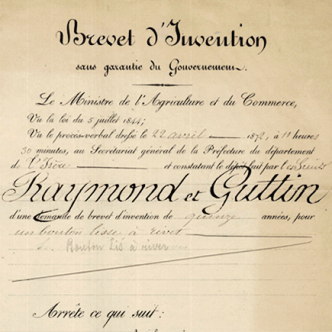 Brevet d'Invention
sans garantie du Gouvernement.
Le Ministre de l'Agriculture et du Commerce,
Vu la loi du 5 juillet 1844;
Vu le procès-verbal dressé le 22 avril 1872, à 11 heures
30 minutes, au Secrétariat général de la Préfecture du département
de l'Isère et constatant le dépôt fait par les
Raymond et Guttin
d'une demande de brevet d'invention de quinze années, pour
un bouton à river
Bouton à river
Arrête ce qui suit: